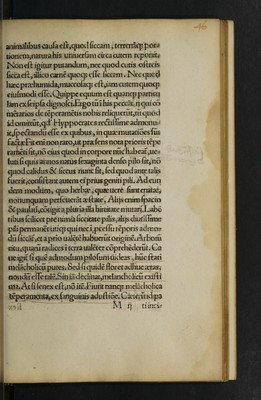 46
animalibus causa est, quod siccam, terrenāq; por
tionem, natura his universam circa cutem reponit.
Non est igitur putandum, nec quod cutis ostreis
sicca est, illico carnē quoq; esse siccam. Nec quod
hæc præhumida, mucosaq; est, iam cutem quoq;
eiusmodi esse. Quippe equum est quanq; partem
ex seipsa dignosci. Ergo tū his peccāt, qui cō
mētarios de tēperamētis nobis reliquerūt, tū quod
id omittūt, qđ Hyppocrates rectissime admonu
it, spectandū esse ex quibus, in quæ mutatiões sūt
factæ. Fit enī non raro, ut præsens nota prioris tēpe
non eius quod in corpore nūc habeat, ue
luti si quis annos natus sexaginta denso pilo sit, nō
quod calidus & siccus nunc sit, sed quod ante talis
fuerit, consistant autem ei prius geniti pili. Ad eun
dem modum, quo herbæ, quæ uere erant,
nonunquam perseuerāt æstate. Aliis enim spacio
& paulatī, cōtigit a pluria illa hirsutie mutari. Labē
tibus scilicet præ nimia siccitate pilis, aliis diutissime
pili permanēt, uti qui nec ī persistēte tēporis admo
dū siccāt, et a prio ualētē habuerūt originē. Arborū
ritu, quarū radices ī terra ualēter cōprehēderūt. Cū
ue igit si quē admodum pilosum uideas, hūc statī
melācholicū putes. Sed si quidē floret adhuc ætas,
nondū esse talē. Sin iā declinat, melancholicū existi
ma. At si senex est, nō itē. Fiunt nanq; melācholica
tēperamenta, ex sanguinis adustiōe. Cæterū id pa
M ij ti inci-